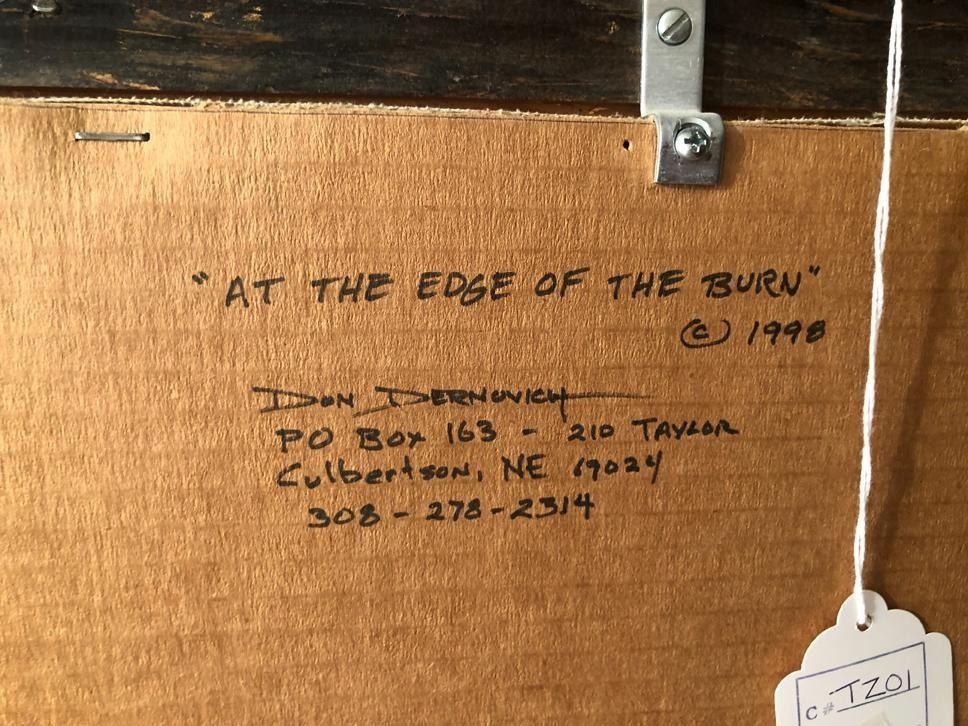 "AT THE EDGE OF THE BURN"
© 1998
DON DERNOVICH
PO BOX 163 - 210 TAYLOR
Culbertson, NE 69024
308-278-2314
C# TZ01